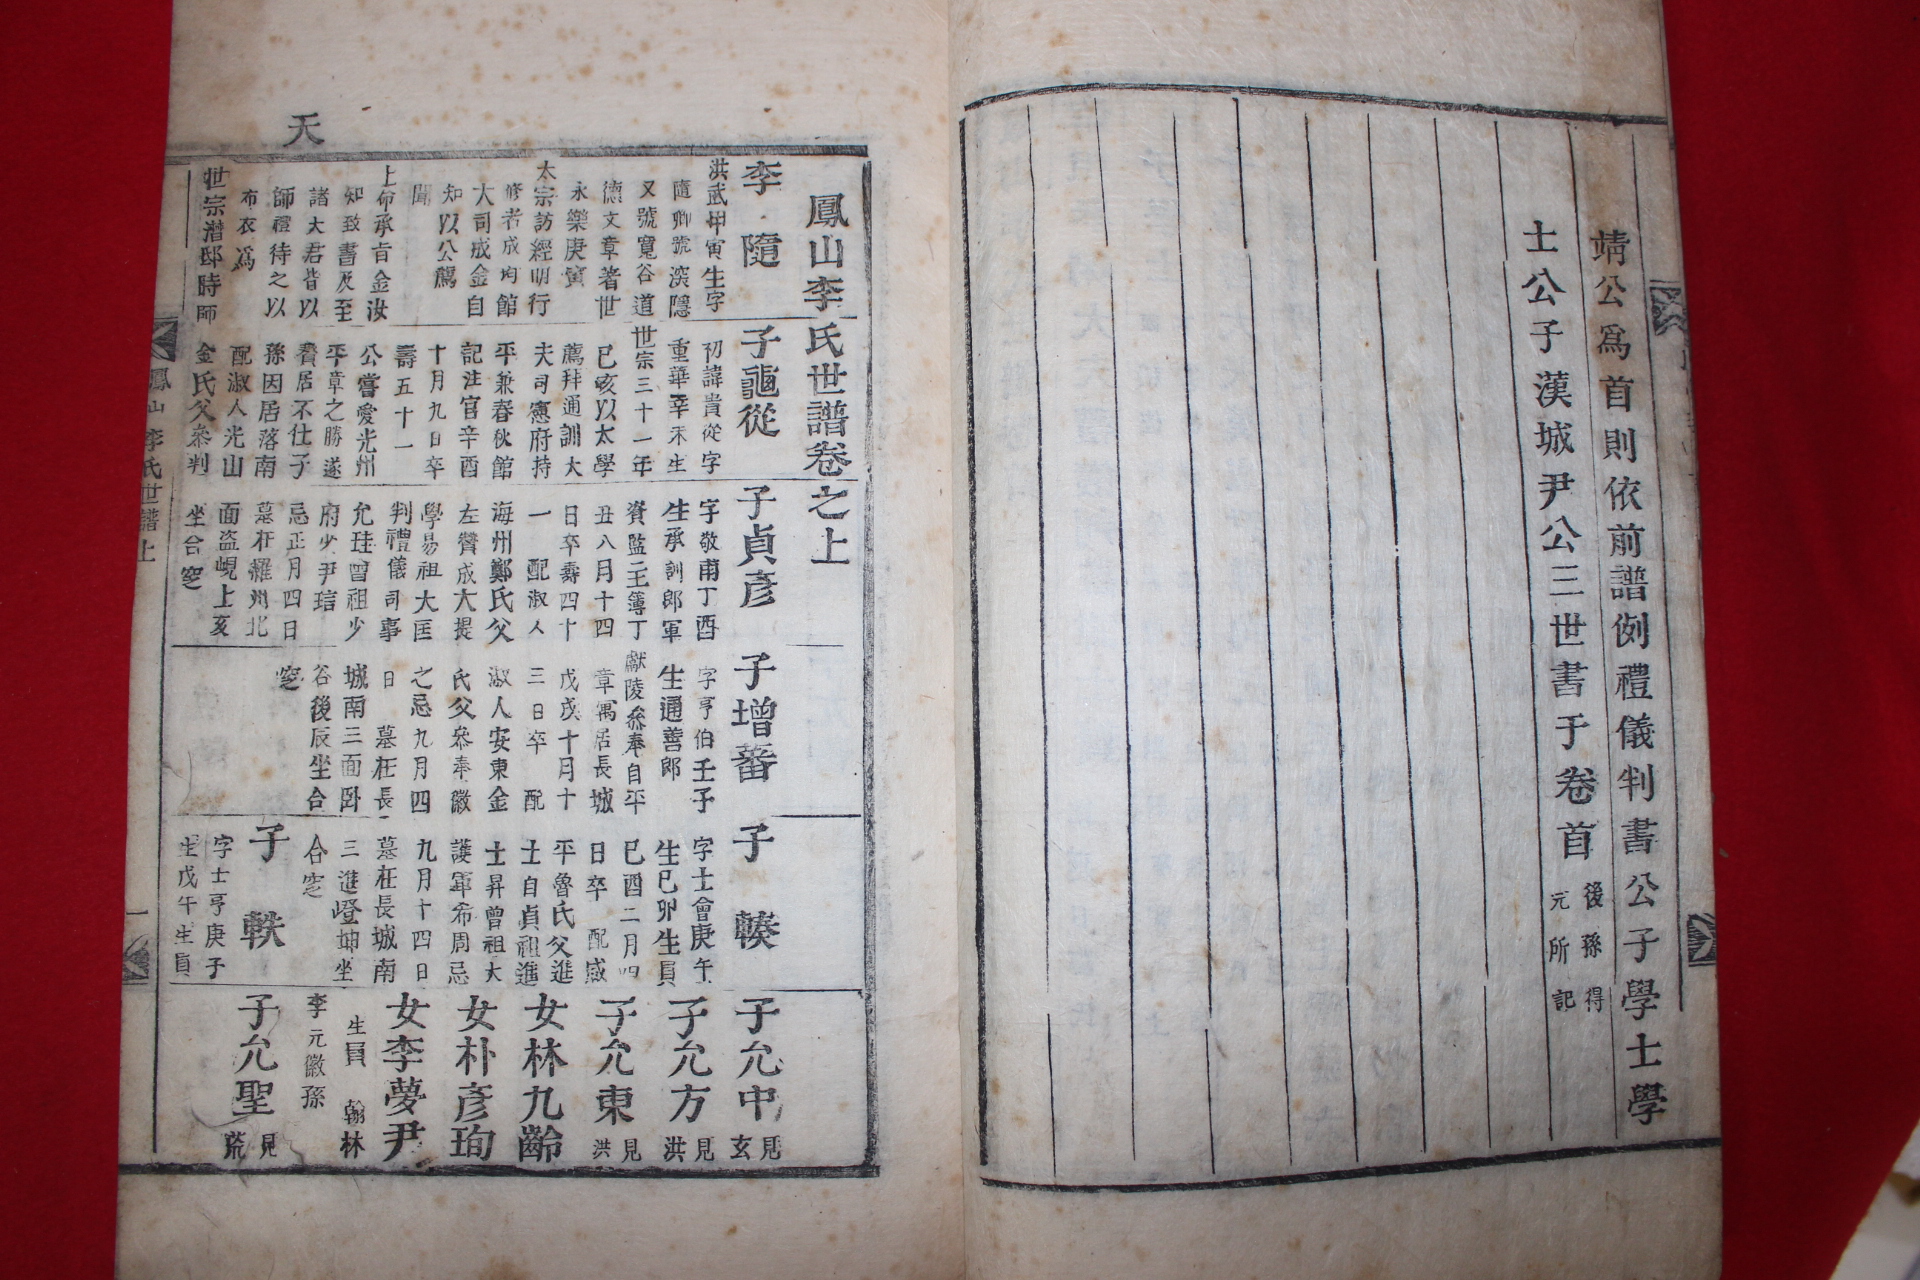 靖公爲首則依前譜例禮儀判書公子學士學
士公子漢城尹公三世書于卷首
後孫得
元所記
天
鳳山李氏世譜卷之上
李隨
洪武甲寅生字
隨卿號深隱
又號寬谷道
德文章著世
永樂庚寅
太宗訪經明行
修者成均館
大司成金自
知以公薦
聞
上命承旨金汝
知致書及至
諸大君皆以
師禮待之以
布衣爲
世宗潛邸時師
子龜從
初諱貴從字
重華辛未生
世宗三十一年
己亥以太學
薦拜通訓大
夫司憲府持
平兼春秋館
記注官辛酉
十月九日卒
壽五十一
公嘗愛光州
平章之勝遂
費居不仕子
孫因居落南
配淑人光山
金氏父叅判
子貞彥
字敬甫丁酉
生承訓郎軍
資監主簿丁
丑八月十四
日卒壽四十
一 配淑人
海州鄭氏父
左贊成大提
學易祖大匡
判禮儀司事
允珪曾祖少
府少尹瑨
忌正月四日
墓在羅州北
面盗峴上亥
坐合窆
子增蕃
字亨伯壬子
生通善郎
獻陵叅奉自平
章寓居長城
戊戌十月十
三日卒 配
淑人安東金
氏父叅奉徽
之忌九月四
日 墓在長
城南三面卧
谷後辰坐合
窆
子輳
字士會庚午
生己卯生員
己酉二月四
日卒 配咸
平魯氏父進
士自貞祖進
士昇曾祖大
護軍希周忌
九月十四日
墓在長城南
三進嶝坤坐
合窆
子軼
字士亨庚子
生戊午生員
子允中
見玄
子允方
見洪
子允東
見洪
女林九齡
女朴彥珣
女李夢尹
生員 翰林
李元徽孫
子允聖
見荒
鳳山李氏世譜上
一